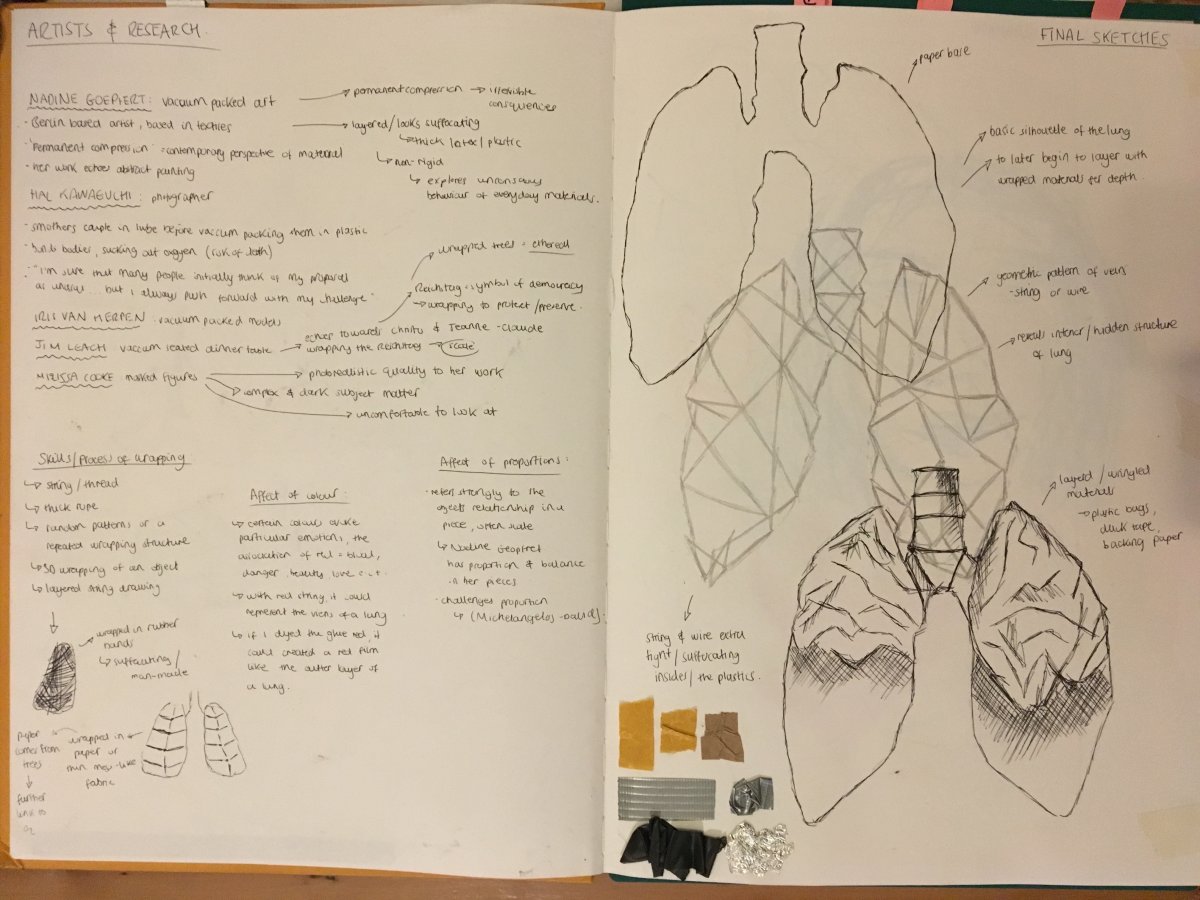 ARTISTS & RESEARCH.
NADINE GOEPFERT: vacuum packed art
→ permanent compression → irrevisible
consequences
- Berlin based artist, based in textiles
→ layered/looks suffocating
↳ thick latex/plastic
- 'Permanent compression' = contemporary perspective of material
↳ non-rigid
- her work echoes abstract painting
↳ explores
behaviour of everyday materials.
HAL KAWAGUCHI: photographer
- smothers couple in lube before vaccum packing them in plastic
bodies, sucking out oxygen (risk of death)
- "I'm sure that many people initially think of my proposal
as unusual... but I always push forward with my challenge"
→ wrapped trees = ethereal
Reichtag = symbol of democracy
→ wrapping to protect/preserve.
IRIS VAN HERPEN vacuum packed models
JIM LEACH vaccum sealed dinner table →
echoes towards christo & Jeanne-claude
wrapping the Reichstag → scale
MIRISSA COOKE masked figures
→ photorealistic quality to her work
→ complex & dark subject matter
→ uncomfortable to look at
Skills/Process of wrapping
↳ string/thread
↳ thick rope
↳ random patterns or a
repeated wrapping structure
↳ 3D wrapping of an object
↳ layered string drawing
wrapped in rubber
bands
↳ suffocating/
man-made
paper
comes from
trees
further
link to
O2
wrapped in
paper or
thin
fabric
Affect of colour:
↳ certain colours evoke
particular emotions, the
association of red = blood,
danger, beauty love e.t.c
↳ with red string it could
represent the viens of a lung
↳ if I dyed the glue red, it
could created a red film
like the outer layer of
a lung.
Affect of proportions:
- refers strongly to the
objects relationship in a
piece, often scale
↳ Nadine Geopfret
has proportion & balance
in her pieces
- challenges proportion
↳ (Michelangelos - David).
FINAL SKETCHES
paper base
basic silhouette of the lung
to later begin to layer with
wrapped materials for depth.
geometric pattern of veins
- string or wire
reveals interior/hidden structure
of lung
layered/wringled
materials
→ plastic bags,
duck tape,
backing paper
string & wire extra
tight/suffocating
insides/the plastics.